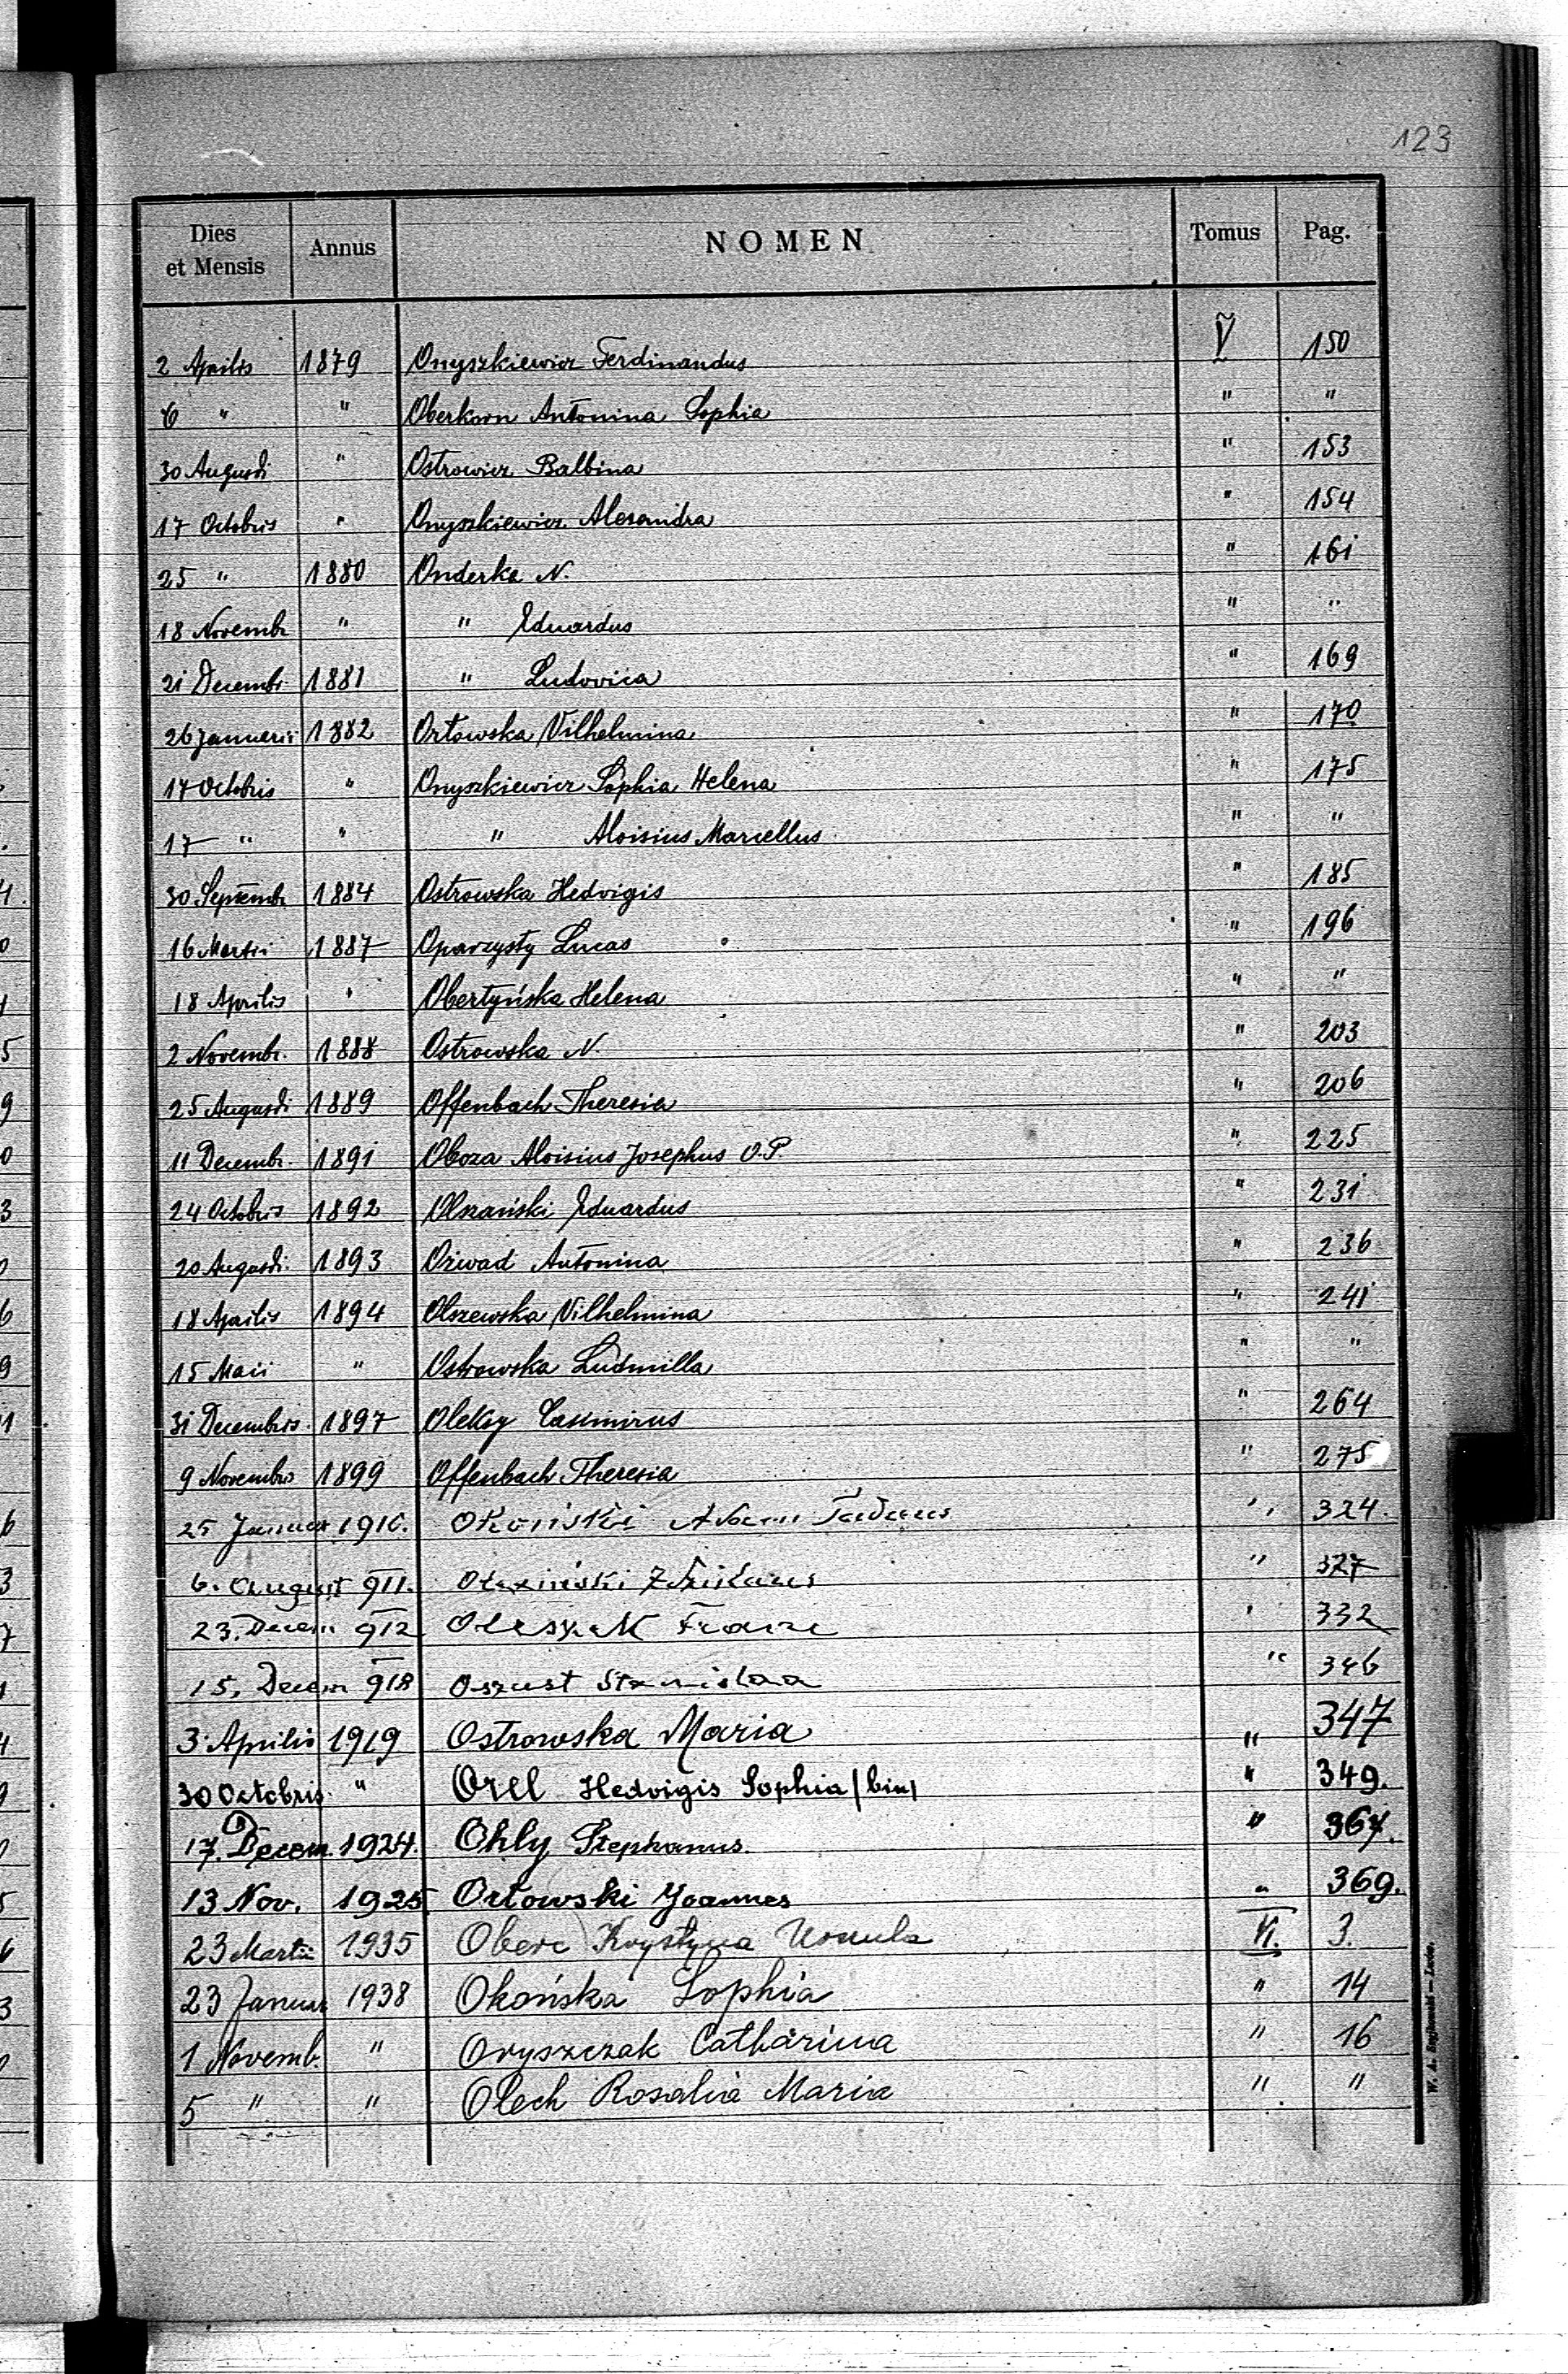 123
Dies et Mensis Annus NOMEN Tomus Pag.
2 Aprilis 1879 Onyszkiewicz Ferdinandus V 150
6 " " Oberkorn Antonina Sophia " "
30 Augusti " Ostrowicz Balbina " 153
17 Octobris " Onyszkiewicz Alexandra " 154
25 " 1880 Onderka N. " 161
18 Novembr " " Eduardus " "
21 Decembr. 1881 " Ludovica " 169
26 Januarii 1882 Orłowska Vilhelmina " 170
17 Octobris " Onyszkiewicz Sophia Helena " 175
17 " " " Aloisius Marcellus " "
30 Septembr 1884 Ostrowska Hedvigis " 185
16 Martii 1887 Oparzysty Lucas " 196
18 Aprilis " Obertyńska Helena " "
2 Novembr. 1888 Ostrowska N. " 203
25 Augusti 1889 Offenbach Theresia " 206
11 Decembr. 1891 Oboza Aloisius Josephus O.P " 225
24 Octobris 1892 Olszański Eduardus " 231
20 Augusti. 1893 Ożwad Antonina " 236
18 Aprilis 1894 Olszewska Vilhelmina " 241
15 Maii " Ostrowska Ludmilla " "
31 Decembris. 1897 Oleksy Casimirus " 264
9 Novembris 1899 Offenbach Theresia " 275
25 Januar 1910. Okoński Adam " 324.
6. August 911. " 327
23. Decem 912 Oleszek Franc " 332
15. Decem 918 Oszust " 346
3 Aprilis 1919 Ostrowska Maria " 347
30 Octobris " Orel Hedvigis Sophia (bin) " 349.
17. Decem. 1924. Ohly Stephanus. " 367.
13 Nov. 1925 Orłowski Joannes " 369.
23 Martii 1935 Oberc Krystyna Ursula VI. 3.
23 Januar 1938 Okońska Sophia " 14
1 Novemb. " Oryszczak Catharina " 16
5 " " Olech Rosalia Maria " "